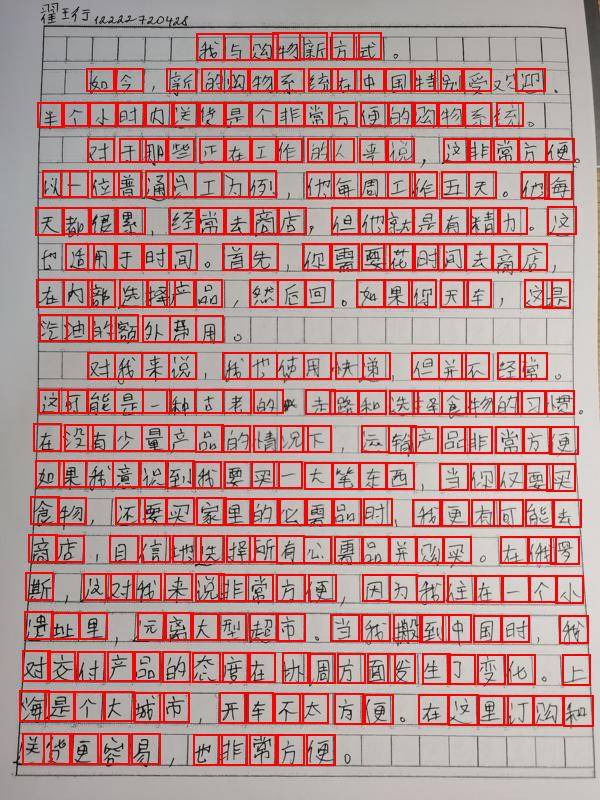 翟王行 12222720428
我与购物新方式。
如今，新的购物系统在中国特别受欢迎，
半个小时内送货是个非常方便的购物系统。
对于那些正在工作的人来说，这非常方便。
以一位普通员工为例，他每周工作五天。他每
天都很累，经常去商店，但他就是有精力。这
也适用于时间。首先，你需要花时间去商店，
在内部选择产品，然后回。如果你天车，这是
汽油的额外费用。
对我来说，我也使用快递，但并不经常。
这可能是一种古老的 走路和选择食物的习惯。
在没有少量产品的情况下，运输产品非常方便
如果我意识到我要买一大笔东西，当你仅要买
食物，还要买家里的必需品时，我更有可能去
商店，自信地选择所有必需品并购买。在俄罗
斯，这对我来说非常方便，因为我住在一个小
遗址里，元离大型超市。当我搬到中国时，我
对交付产品的态度在协周方面发生了变化。上
海是个大城市，开车不太方便。在这里订购和
送货更容易，也非常方便。